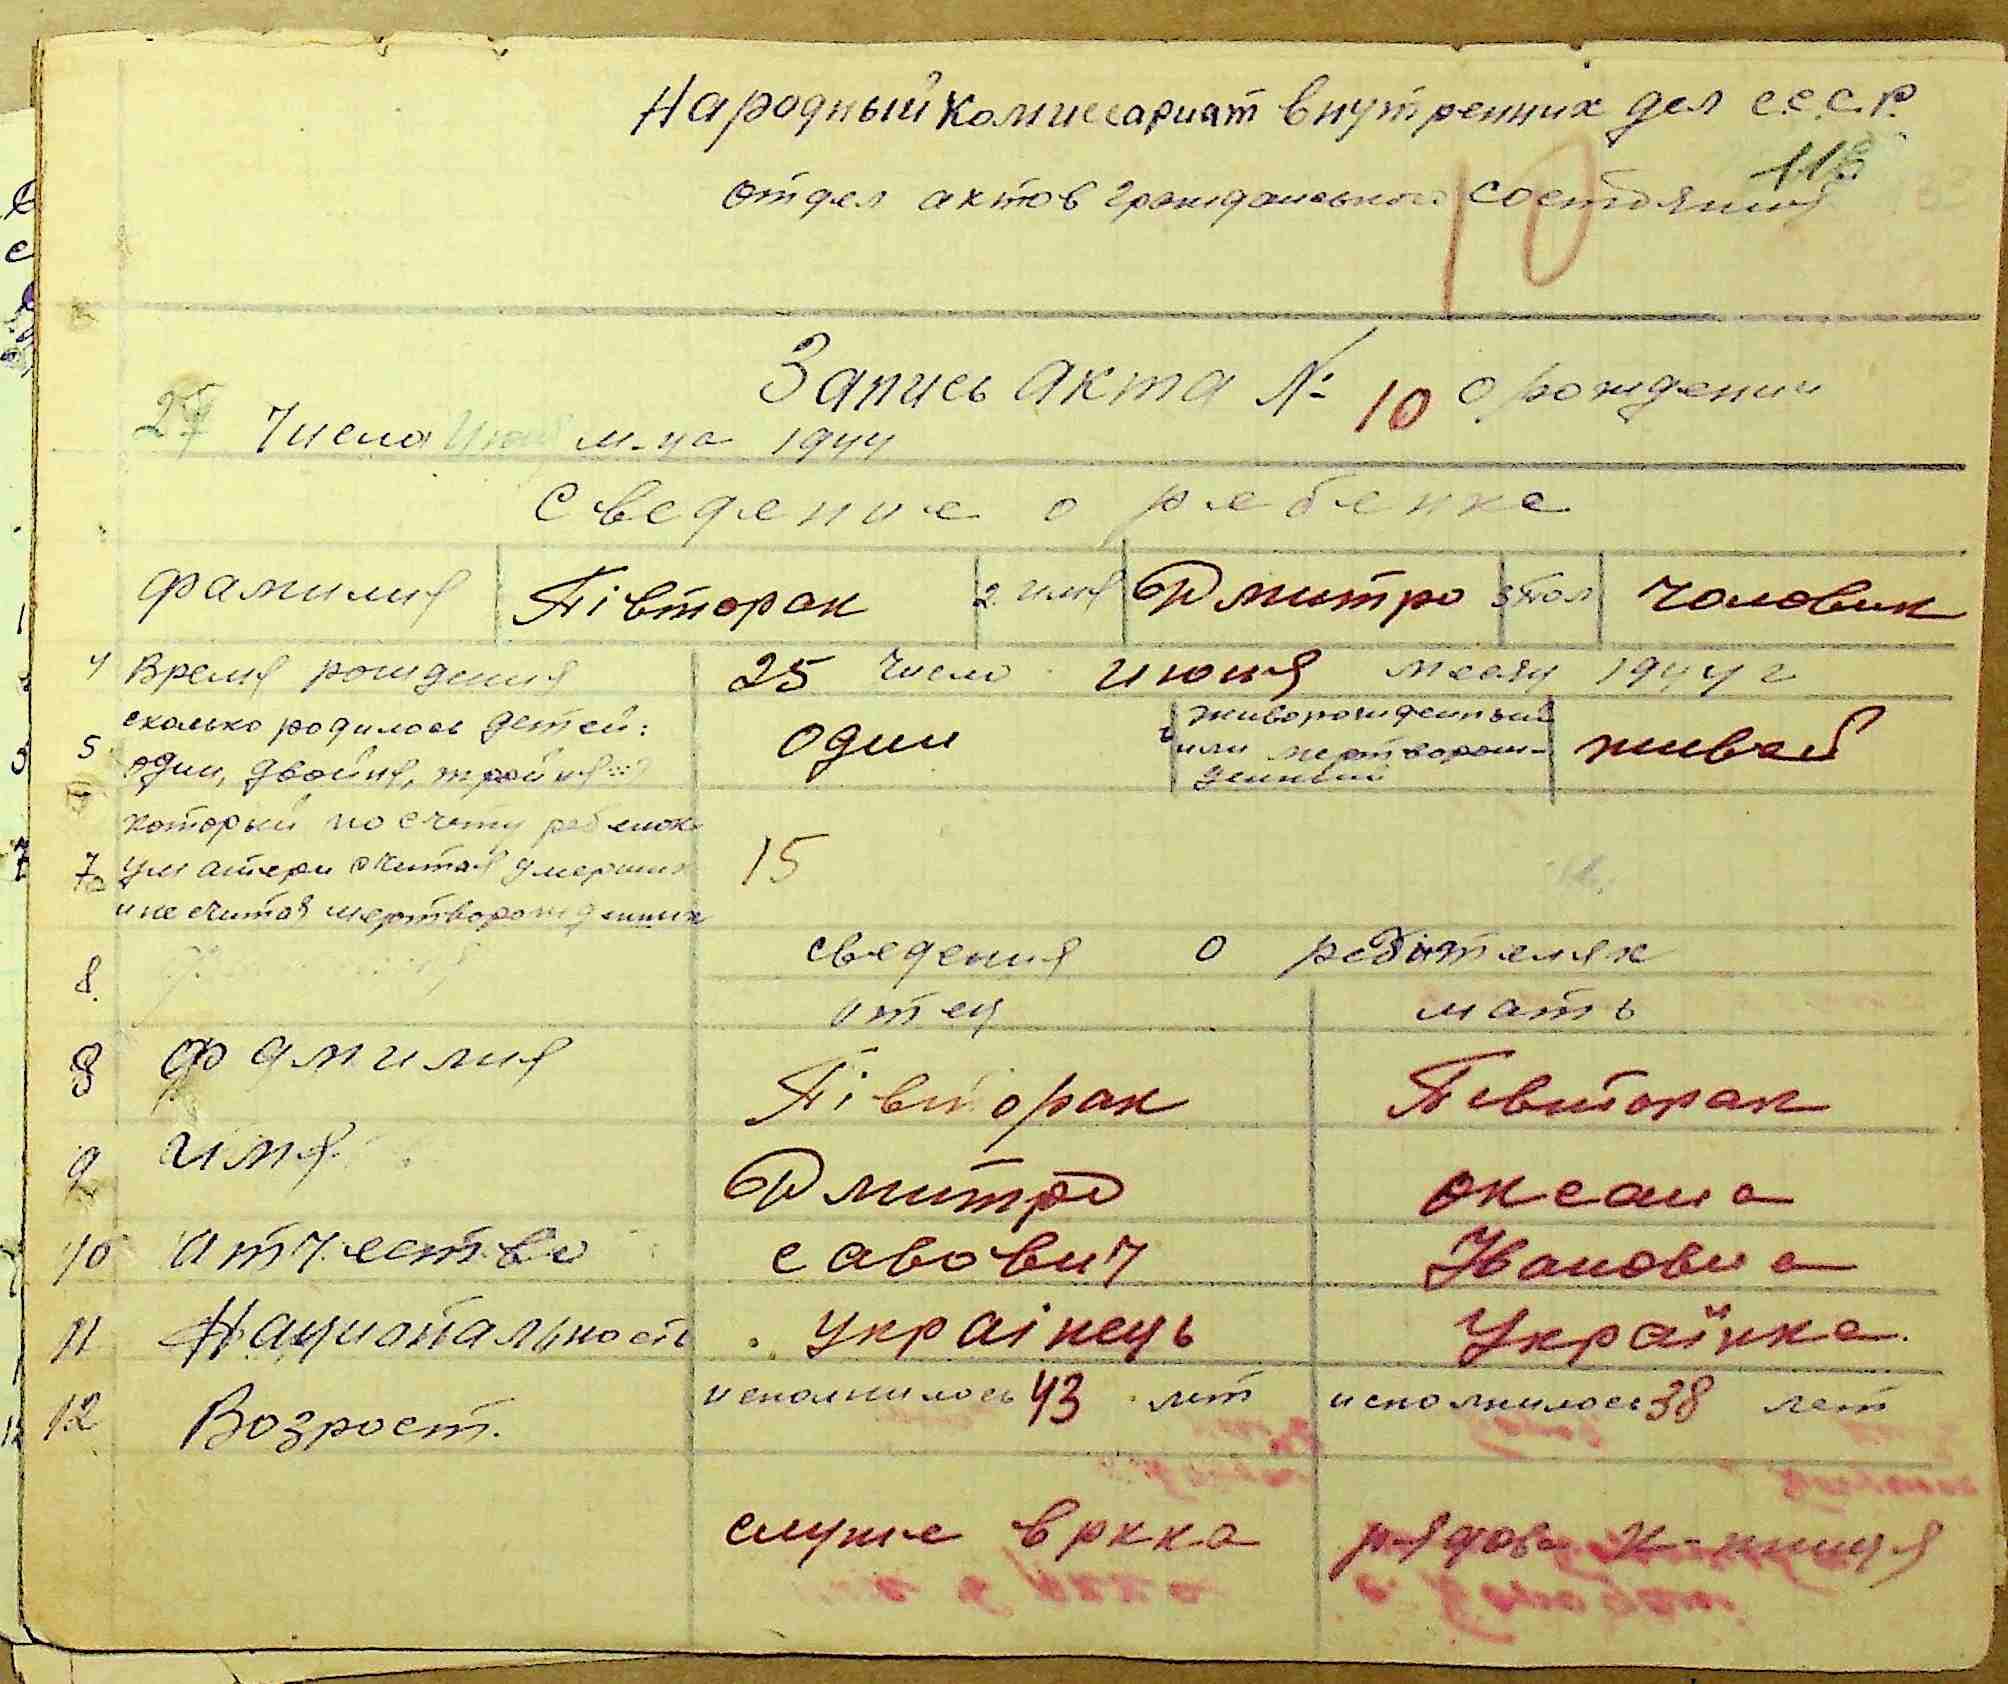 Народный Комиссариат внутренних дел С.С.С.Р.
118
отдел актов гражданського состояния
10
Запись акта № 10 о рождении
27 Числа м-ца 1944
Сведение о ребенке
фамилия Півторак 2. имя Дмитро 3 пол чоловик
4 Время рождения 25 число июня месяц 1944 г
5 сколько родилось детей: один, двойня, тройня один 6 живорожденный или мертворож-денный живой
7a который по счету ребенок у матери считая умерших и не считая мертворожденных 15
8. сведения о родителях
отец мать
8 фамилия Півторак Пивторак
9 имя Дмитро оксана
10 отчество савович Ивановна
11 Национальность украінець Українка
12 Возрост. исполнилось 43 лет исполнилось 38 лет
служе в ркка рядова к-ниця